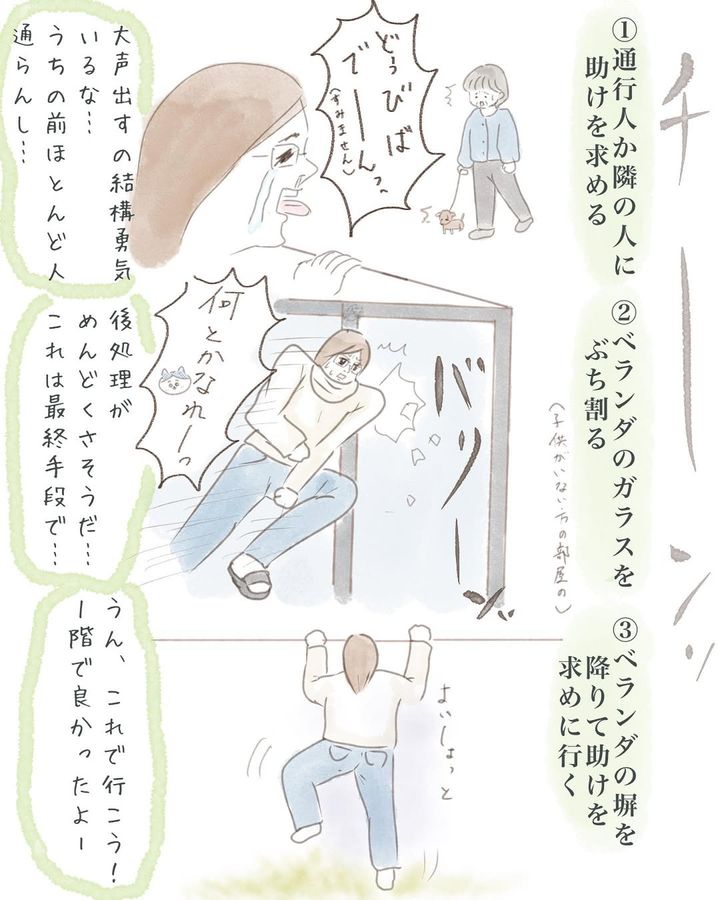 チーーーンッ
①通行人か隣の人に
助けを求める
どぅびば
でーーんっ
(すみません)
大声出すの結構勇気
いるな…
うちの前ほとんど人
通らんし…
②ベランダのガラスを
ぶち割る
(子供がいない方の部屋の)
バリーーンッ
何とかなれーっ
後処理が
めんどくさそうだ…
これは最終手段で…
③ベランダの塀を
降りて助けを
求めに行く
よいしょっと
うん、これで行こう!
一階で良かったよー